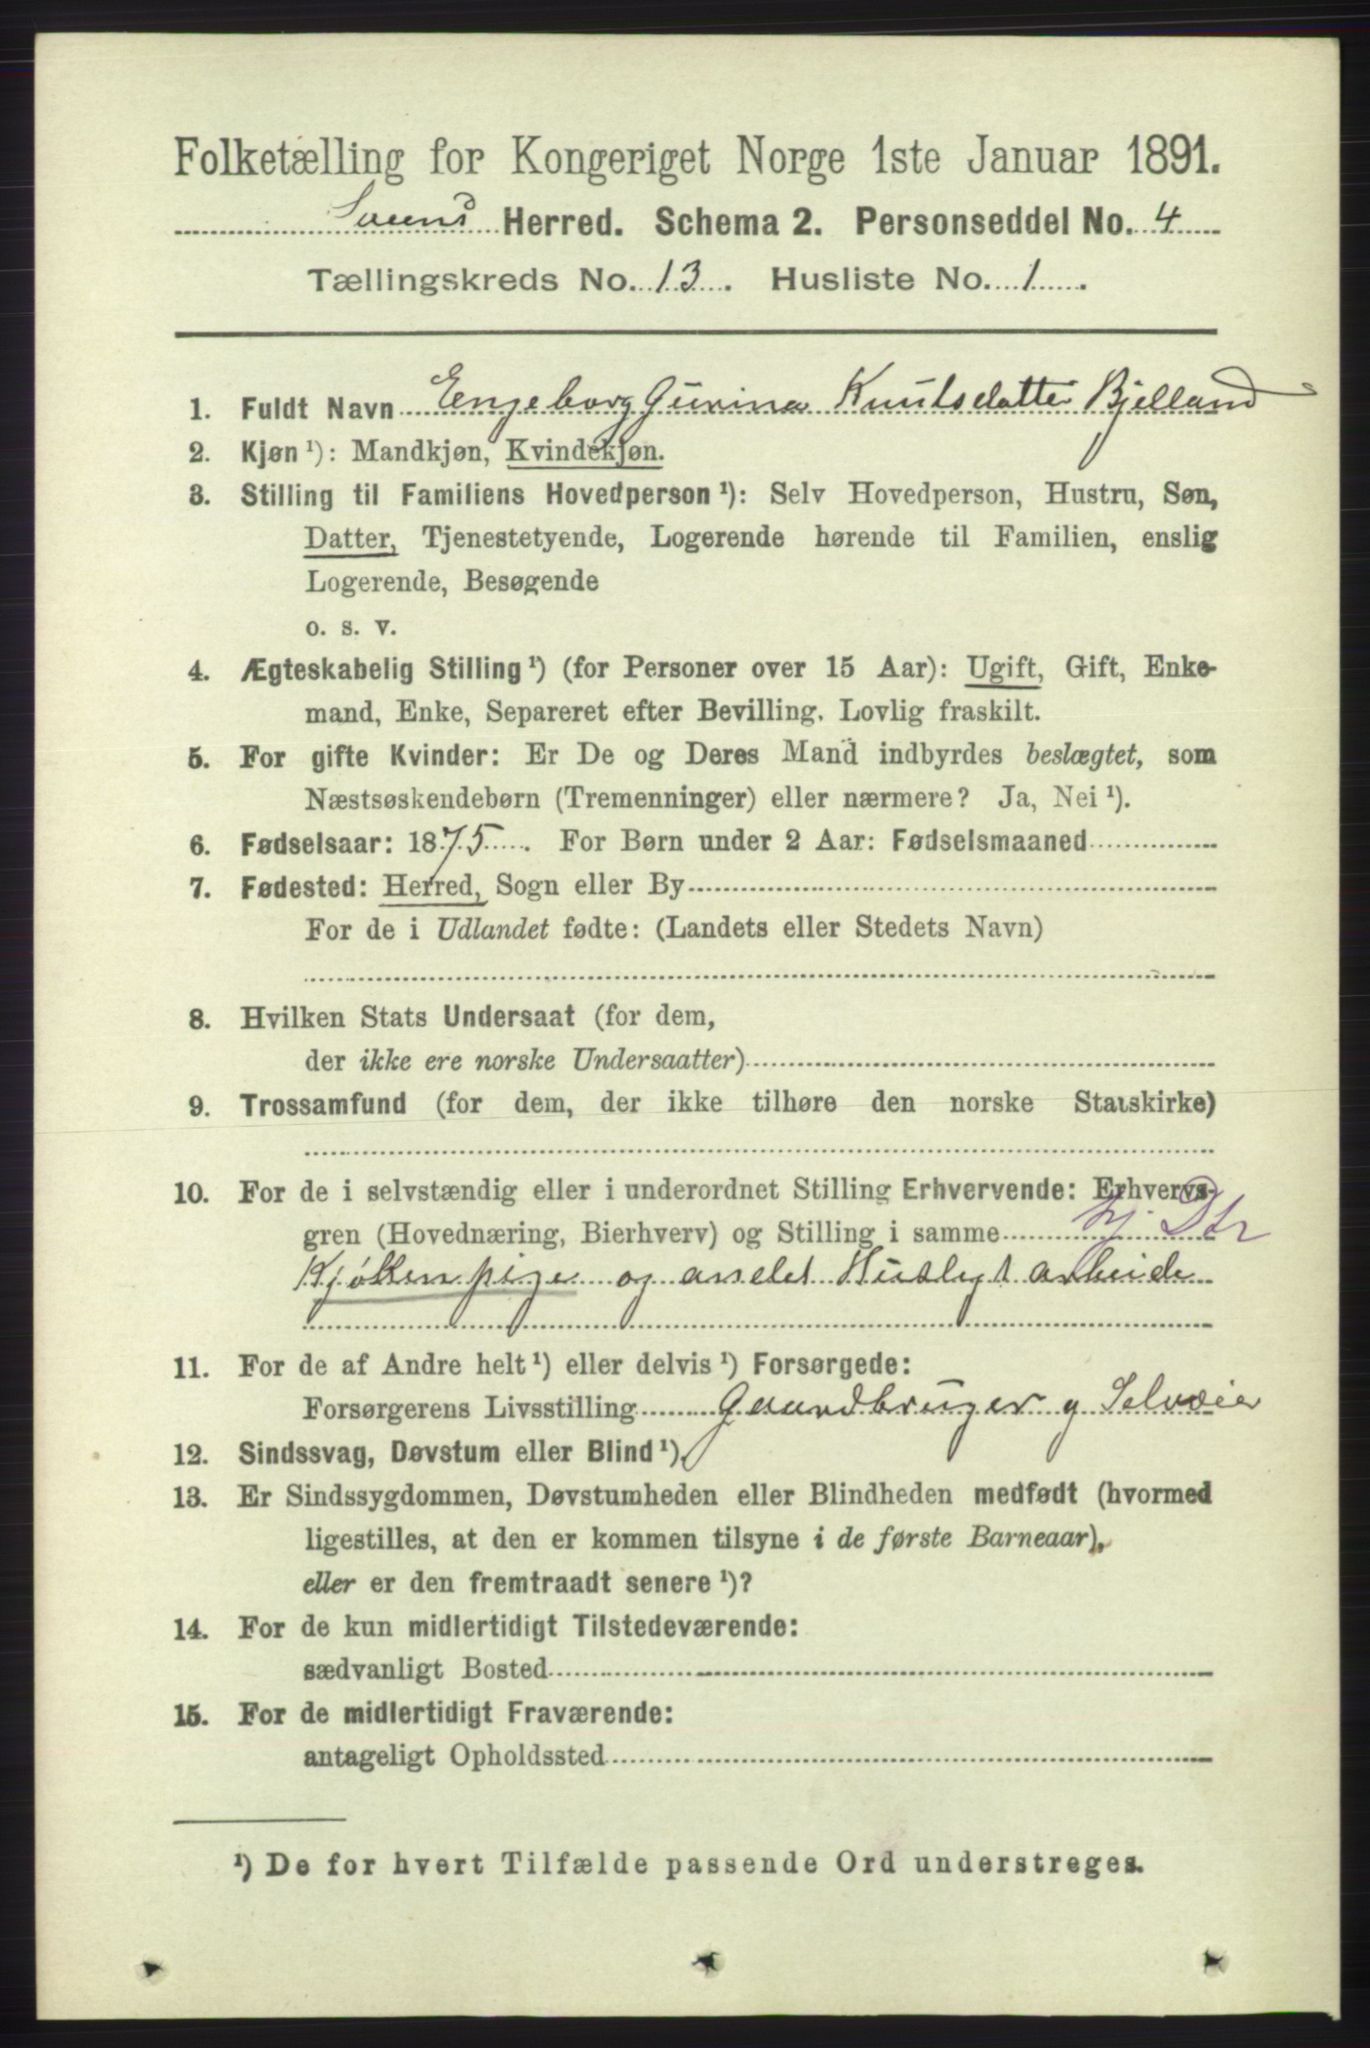 Folketælling for Kongeriget Norge 1ste Januar 1891.
Herred. Schema 2. Personseddel No. 4
Tællingskreds No. 13. Husliste No. 1.
1. Fuldt Navn Engeborg Gurina Knutsdatter Bjelland
2. Kjøn ¹): Mandkjøn, Kvindekjøn.
3. Stilling til Familiens Hovedperson ¹): Selv Hovedperson, Hustru, Søn,
Datter, Tjenestetyende, Logerende hørende til Familien, enslig
Logerende, Besøgende
o. s. v.
4. Ægteskabelig Stilling ¹) (for Personer over 15 Aar): Ugift, Gift, Enke-
mand, Enke, Separeret efter Bevilling. Lovlig fraskilt.
5. For gifte Kvinder: Er De og Deres Mand indbyrdes beslægtet, som
Næstsøskendebørn (Tremenninger) eller nærmere? Ja, Nei ¹).
6. Fødselsaar: 1875. For Børn under 2 Aar: Fødselsmaaned
7. Fødested: Herred, Sogn eller By
For de i Udlandet fødte: (Landets eller Stedets Navn)
8. Hvilken Stats Undersaat (for dem,
der ikke ere norske Undersaatter)
9. Trossamfund (for dem, der ikke tilhøre den norske Statskirke)
10. For de i selvstændig eller i underordnet Stilling Erhvervende: Erhvervs-
gren (Hovednæring, Bierhverv) og Stilling i samme hj. Dtr
Kjøkken pige og andet Husligt arbeide
11. For de af Andre helt ¹) eller delvis ¹) Forsørgede:
Forsørgerens Livsstilling Gaardbruger g Selveier
12. Sindssvag, Døvstum eller Blind ¹).
13. Er Sindssygdommen, Døvstumheden eller Blindheden medfødt (hvormed
ligestilles, at den er kommen tilsyne i de første Barneaar),
eller er den fremtraadt senere ¹)?
14. For de kun midlertidigt Tilstedeværende:
sædvanligt Bosted
15. For de midlertidigt Fraværende:
antageligt Opholdssted
¹) De for hvert Tilfælde passende Ord understreges.